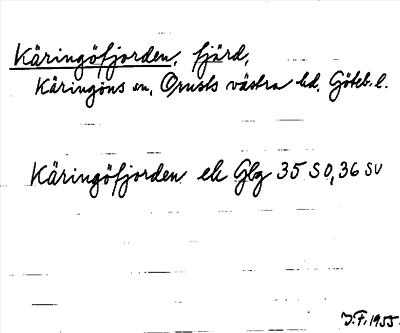 Käringöfjorden, fjärd,
Käringöns sn, Orusts västra hd, Göteb. l.
Käringöfjorden ek Glbg 35 SO, 36 SV
J.F. 1955.